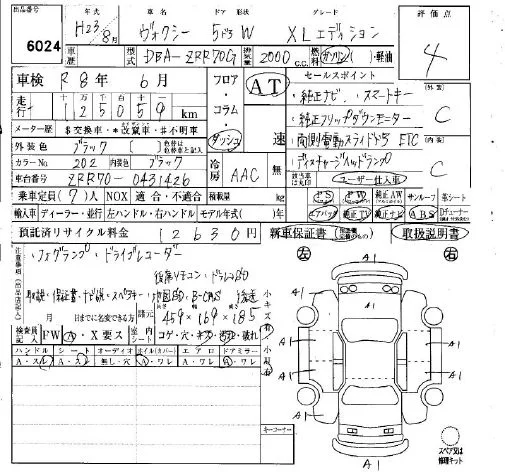 出品番号
6024
年式 車名 ドア 形状 グレード
H23/8月 ヴォクシー 5ドアW XLエディション
型式 DBA-ZRR70G 排気量 2000 C.C. 燃料 ガソリン・軽油
評価点
4
外装
C
内装
C
車検 R8年 6月
走行 十 万 千 百 十 一
125059 km
メーター歴 $交換車・*改竄車・#不明車
外装色 ブラック
カラーNo. 202 内装色 ブラック
車台番号 ZRR70-0431426
フロア・コラム ダッシュ
AT
速
冷房 AAC 無
セールスポイント
・純正ナビ、・スマートキー
・純正フリップダウンモニター
・両側電動スライドドア ETC
・ディスチャージヘッドランプ
ユーザー仕入車
乗車定員(7)人 NOX 適合・不適合 積載量 kg
PS PW 純正AW サンルーフ 革シート
エアバッグ 純正TV 純正ナビ ABS
輸入車 ディーラー・並行 左ハンドル・右ハンドル モデル年式( )年
預託済リサイクル料金 12630円
新車保証書 取扱説明書
注意事項(出品店記入)
・フォグランプ・ドライブレコーダー
月 日までに名変できる方
459×169×185
検査員記入 FW A・X要ス 室内シート コゲ・穴・キズ・汚れ・破れ
ハンドル シート オーディオ ホイル(カバー) エアロ ドアミラー
A・スレ A・スレ 無し・穴 A・ワレ A・ワレ A・ワレ
小キズ有 小凹有
キーコーナー
左 右
A1
A1 A1
A1 A1
A1 A1
A1 A1
A1
スペア又は修理キット